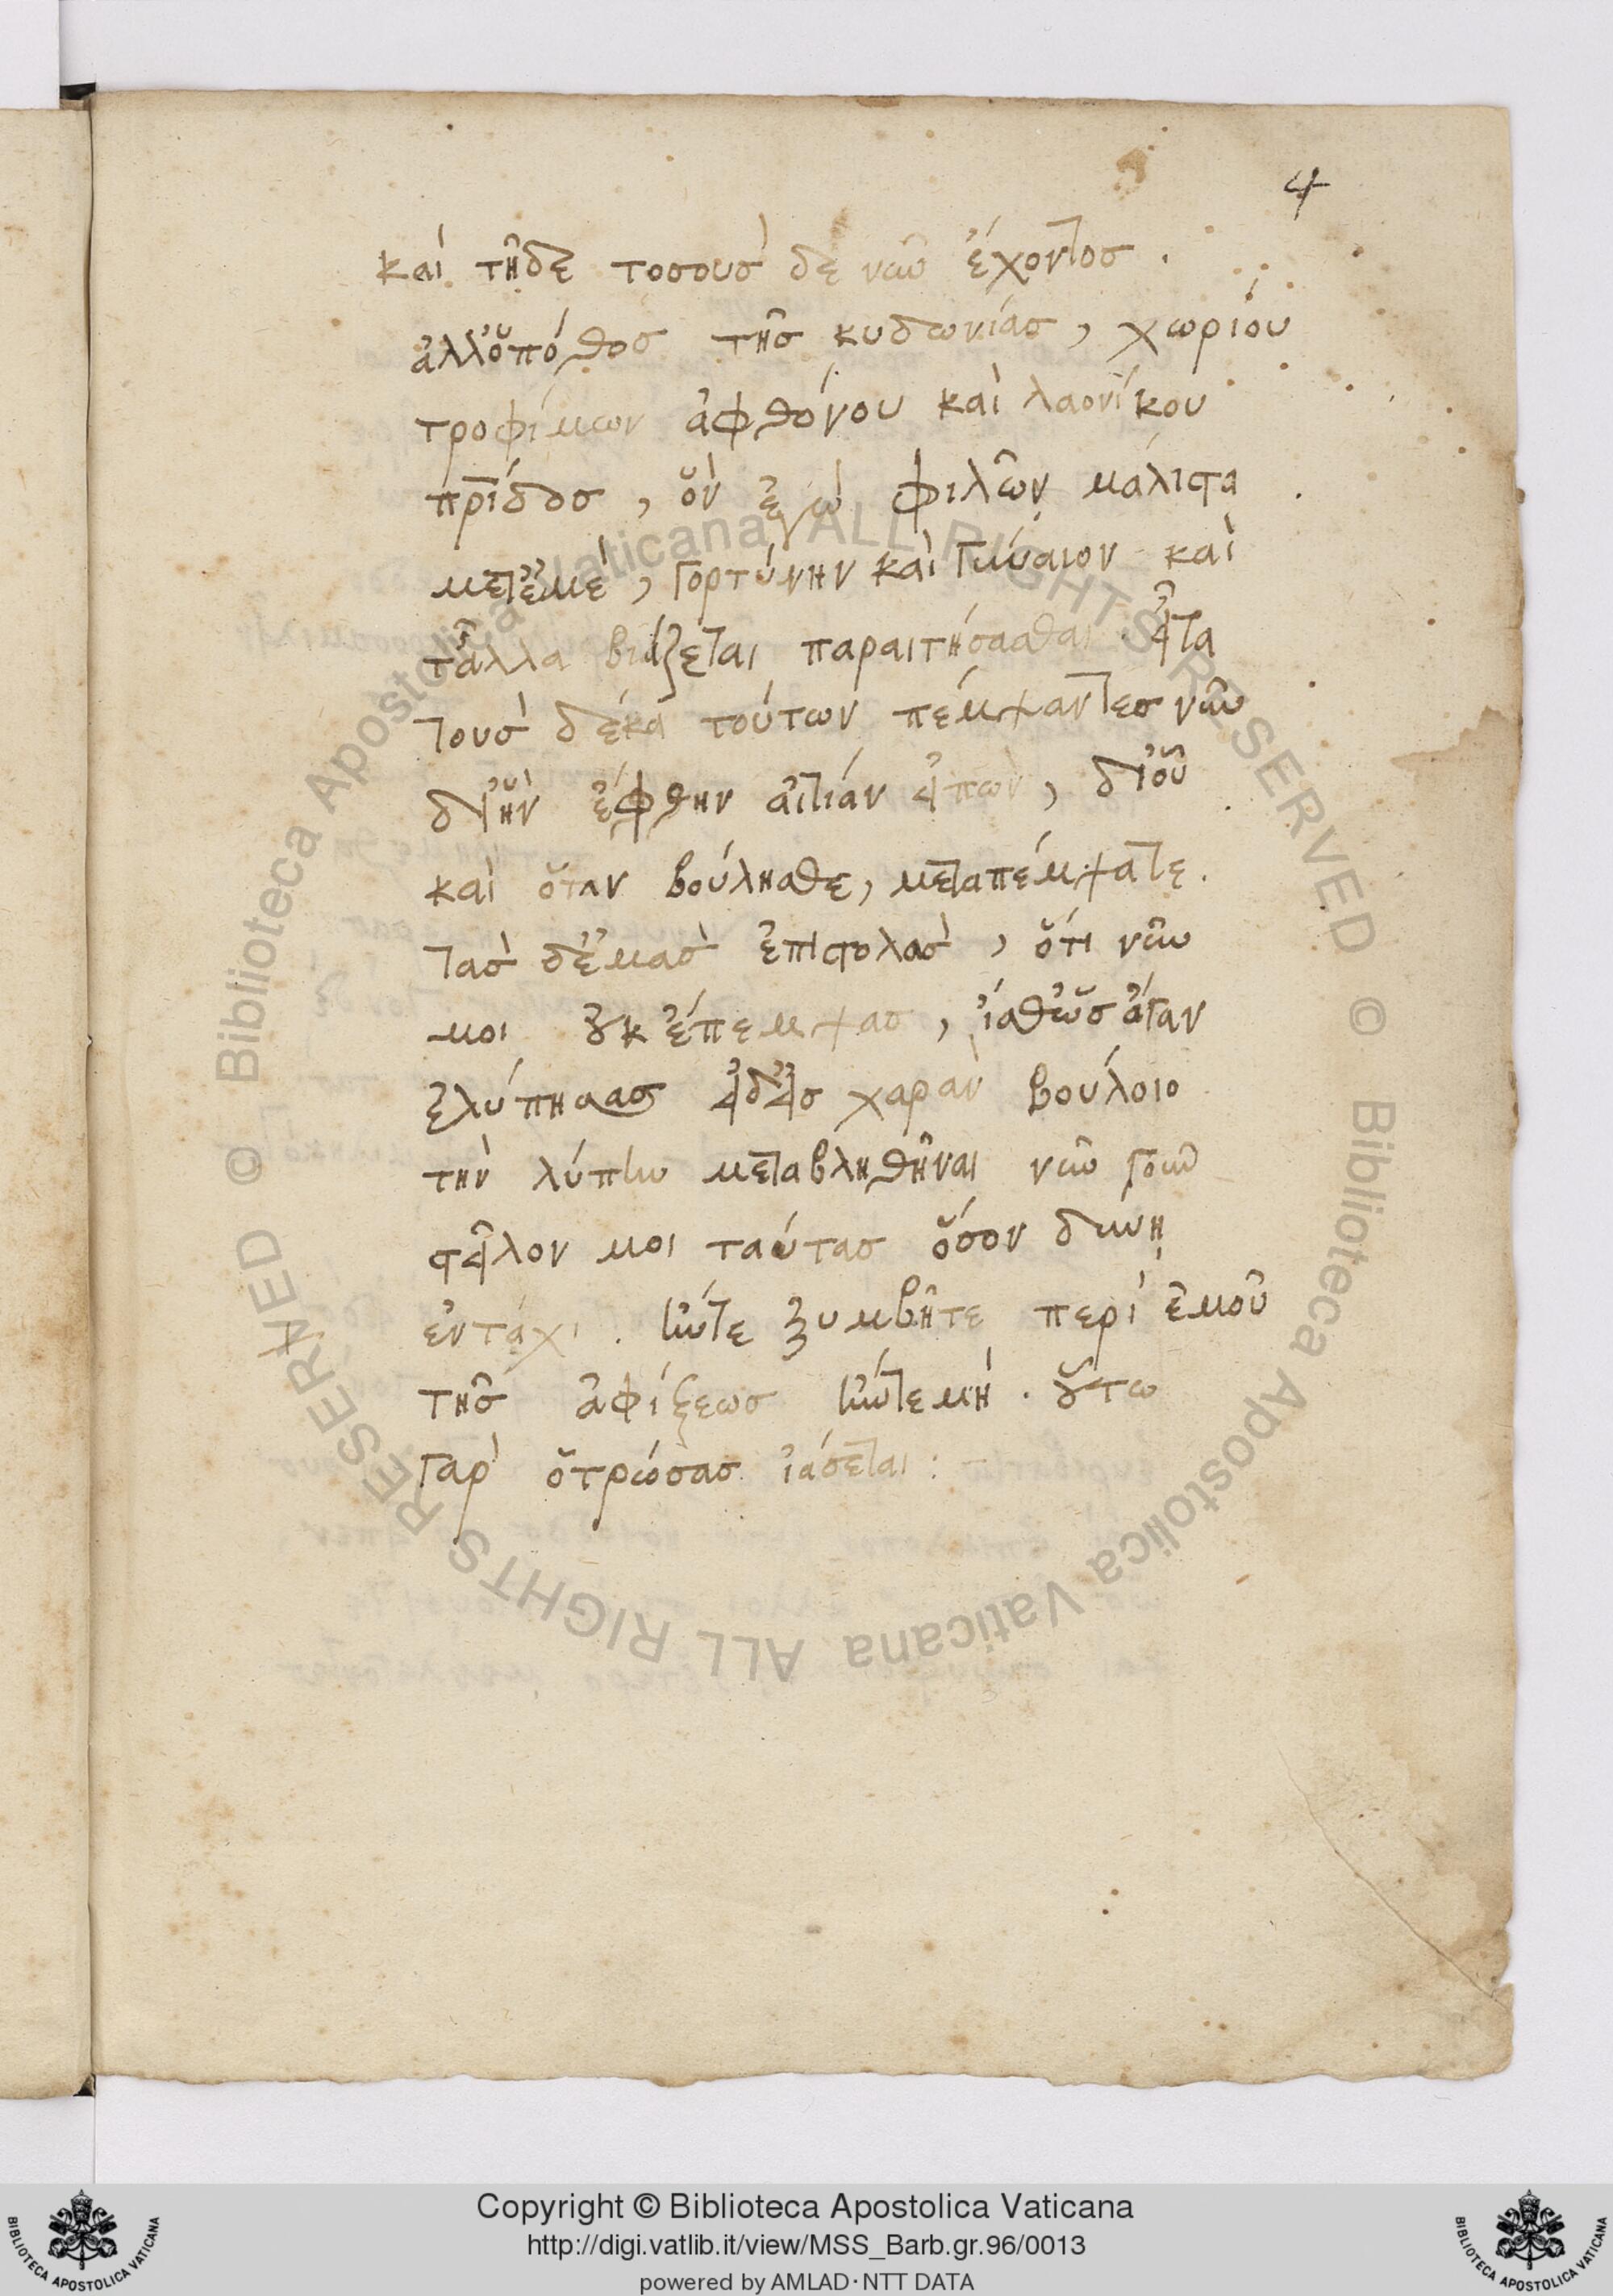 4
καὶ τῆδε τοσοὺσ δὲ νῶϊν ἔχοντοσ.
ἀλλ' ὁ πόθοσ τῆσ κυδωνίασ, χωρίου
τροφίμων ἀφθόνου καὶ λαονίκου
πρίδοσ, ὃν ἐγὼ φιλῶν μάλιστα
μετ' ἐμὲ, γορτύνην καὶ καὶ
τἆλλα βιάζεται παραιτήσασθαι. εἶτα
τοὺσ δέκα τούτων πέμψαντεσ νῦν
δι' ἣν ἔφθην αἰτίαν εἰπὼν, δι' οὗ
καὶ ὅταν βούλησθε, μεταπέμψατε.
τὰσ δ' ἐμὰσ ἐπιστολὰσ, ὅτι νῦν
μοι οὐκ ἔπεμψασ, ἴσθ' ὡσ ἄγαν
ἐλύπησασ εἰ δ' εἰσ χαρὰν βούλοιο
τὴν λύπην μεταβληθῆναι νῦν γοῦν
στεῖλον μοι ταύτασ ὅσον δύνῃ
ἐν τάχι. ἤντε ξυμβῆτε περὶ ἐμοῦ
τῆσ ἀφίξεωσ ἤντε μή. οὕτω
γὰρ ὁ τρώσασ ἰάσεται:
Biblioteca Apostolica Vaticana ALL RIGHTS RESERVED ©
Biblioteca Apostolica Vaticana ALL RIGHTS RESERVED ©
Copyright © Biblioteca Apostolica Vaticana
http://digi.vatlib.it/view/MSS_Barb.gr.96/0013
powered by AMLAD·NTT DATA
BIBLIOTECA APOSTOLICA VATICANA
BIBLIOTECA APOSTOLICA VATICANA